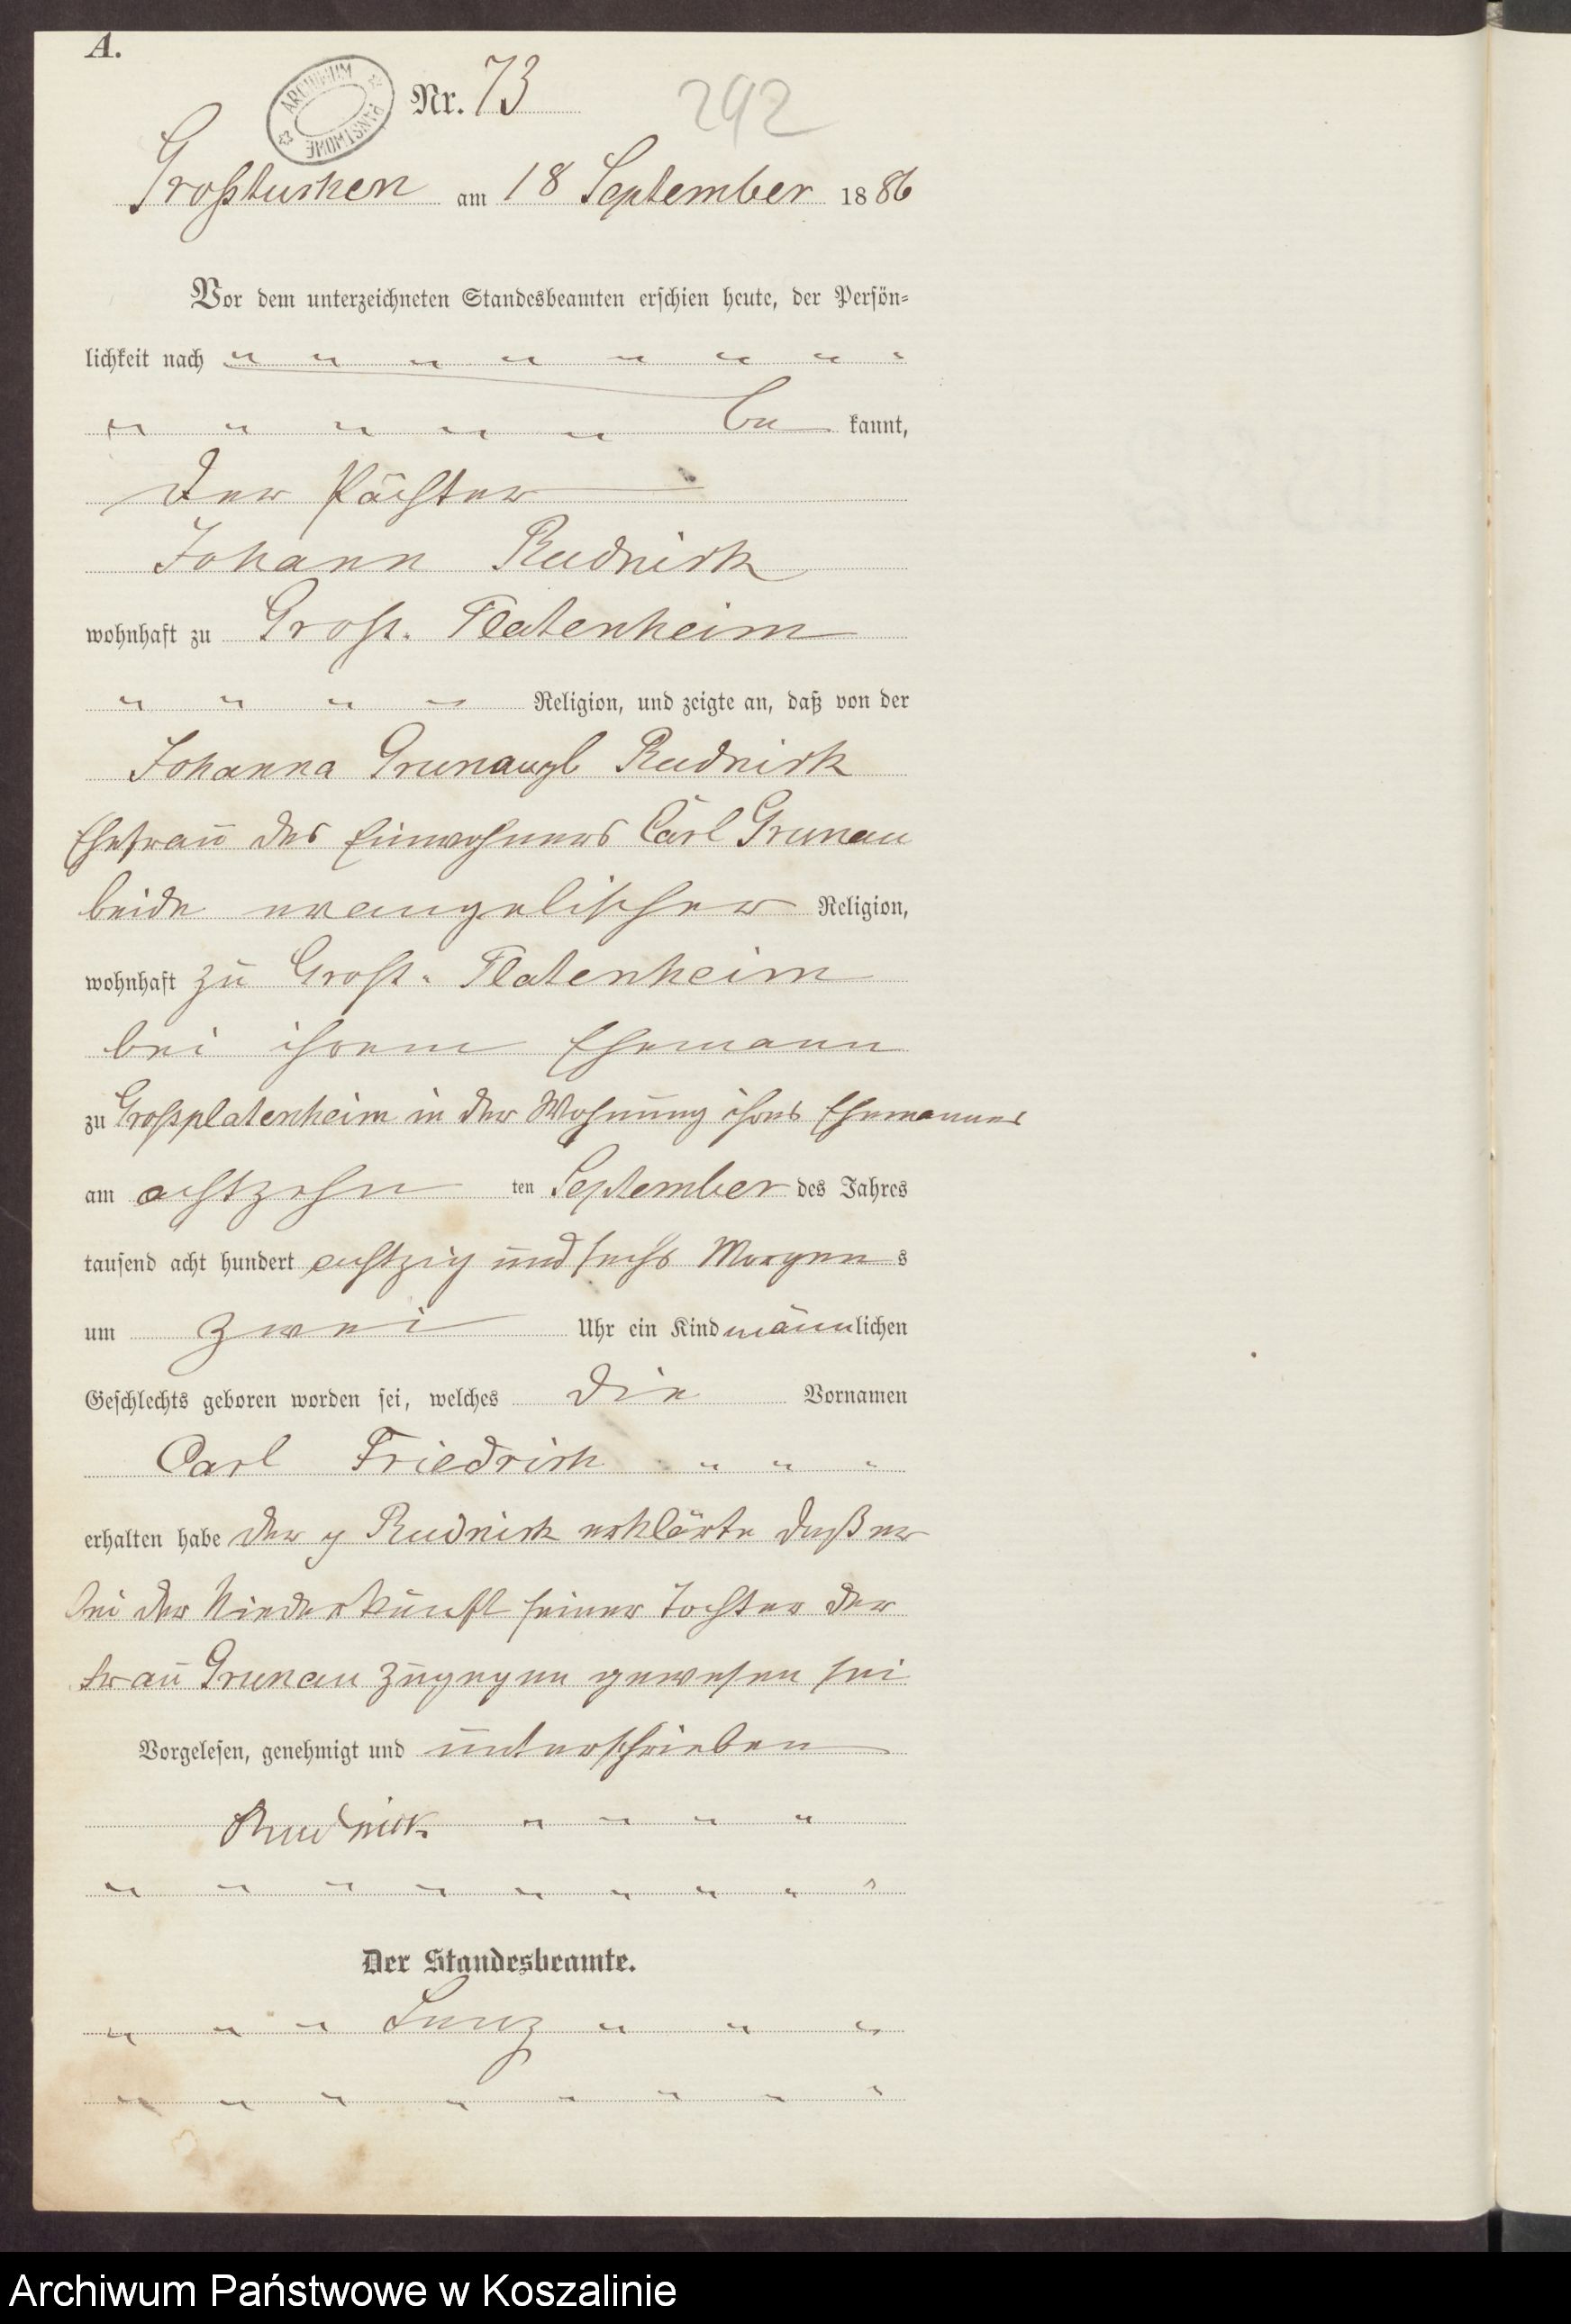 A.
ARCHIWUM PAŃSTWOWE
Nr. 73
292
Großtuchen am 18 September 1886
Vor dem unterzeichneten Standesbeamten erschien heute, der Persön-
lichkeit nach " " " " " " " "
" " " " " be kannt,
der Pächter
Johann Rudnick
wohnhaft zu Groß. Platenheim
" " " " Religion, und zeigte an, daß von der
Johanna Grunau gb Rudnick
Ehefrau des Einwohners Carl Grunau
beide evangelischer Religion,
wohnhaft zu Groß. Platenheim
bei ihrem Ehemann
zu Großplatenheim in der Wohnung ihres Ehemannes
am achtzehn ten September des Jahres
tausend acht hundert achtzig und sechs Morgens
um zwei Uhr ein Kind männlichen
Geschlechts geboren worden sei, welches die Vornamen
Carl Friedrich " " "
erhalten habe der p Rudnick erklärte daß er
bei der Niederkunft seiner Tochter der
Frau Grunau zugegen gewesen sei
Vorgelesen, genehmigt und unterschrieben
Rudnick " " " "
" " " " " " " " "
Der Standesbeamte.
" " " " " "
" " " " " " " "
Archiwum Państwowe w Koszalinie